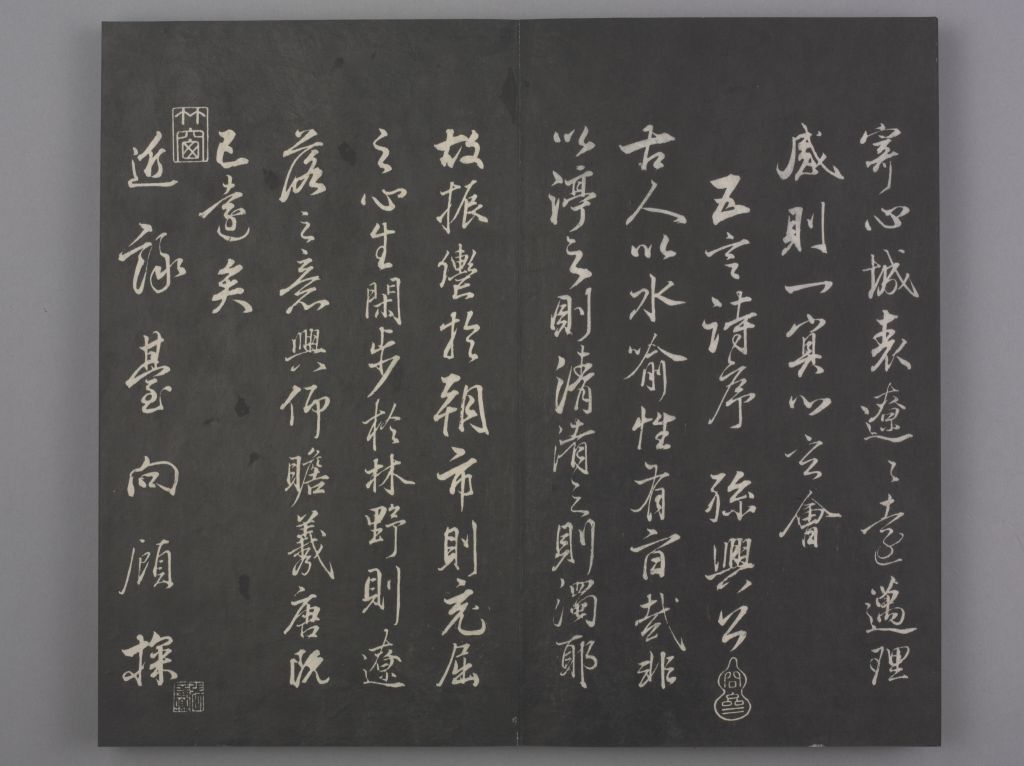 寄心城表遼〻遠邁理
感則一冥心玄會
五言詩序 孫興公
古人以水喻性有旨哉非
以渟之則清淆之則濁耶
故振轡於朝市則充屈
之心生閑步於林野則遼
落之意興仰瞻羲唐既
已遠矣
竹窗
近詠臺向顧探